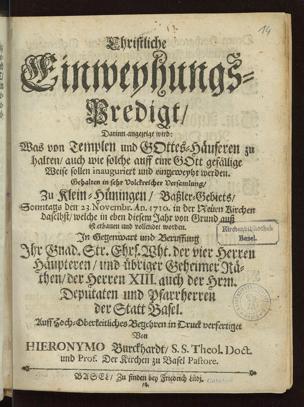 14
Christliche
Einweyhungs-
Predigt/
Darinn angezeigt wird:
Was von Templen und GOttes-Häuseren zu
halten/ auch wie solche auff eine GOtt gefällige
Weise sollen inauguriert und eingeweyhet werden.
Gehalten in sehr Volckreicher Versamlung/
Zu Klein-Hüningen/ Baßler-Gebiets/
Sonntags den 23 Novembr. An. 1710. in der Neuen Kirchen
daselbst/ welche in eben diesem Jahr von Grund auß
ist erbauen und vollendet worden.
Kirchenbibliothek
Basel.
In Gegenwart und Beruffung
Ihr Gnad. Str. Ehrs. Wht. der vier Herren
Häupteren/ und übriger Geheimer Rä-
then/ der Herren XIII. auch der Hrrn.
Deputaten und Pfarrherren
der Statt Basel.
Auff Hoch-Oberkeitliches Begehren in Truck verfertiget
Von
HIERONYMO Burckhardt/ S. S. Theol. Doct.
und Prof. Der Kirchen zu Basel Pastore.
BASEL/ Zu finden bey Friedrich Lüdi.